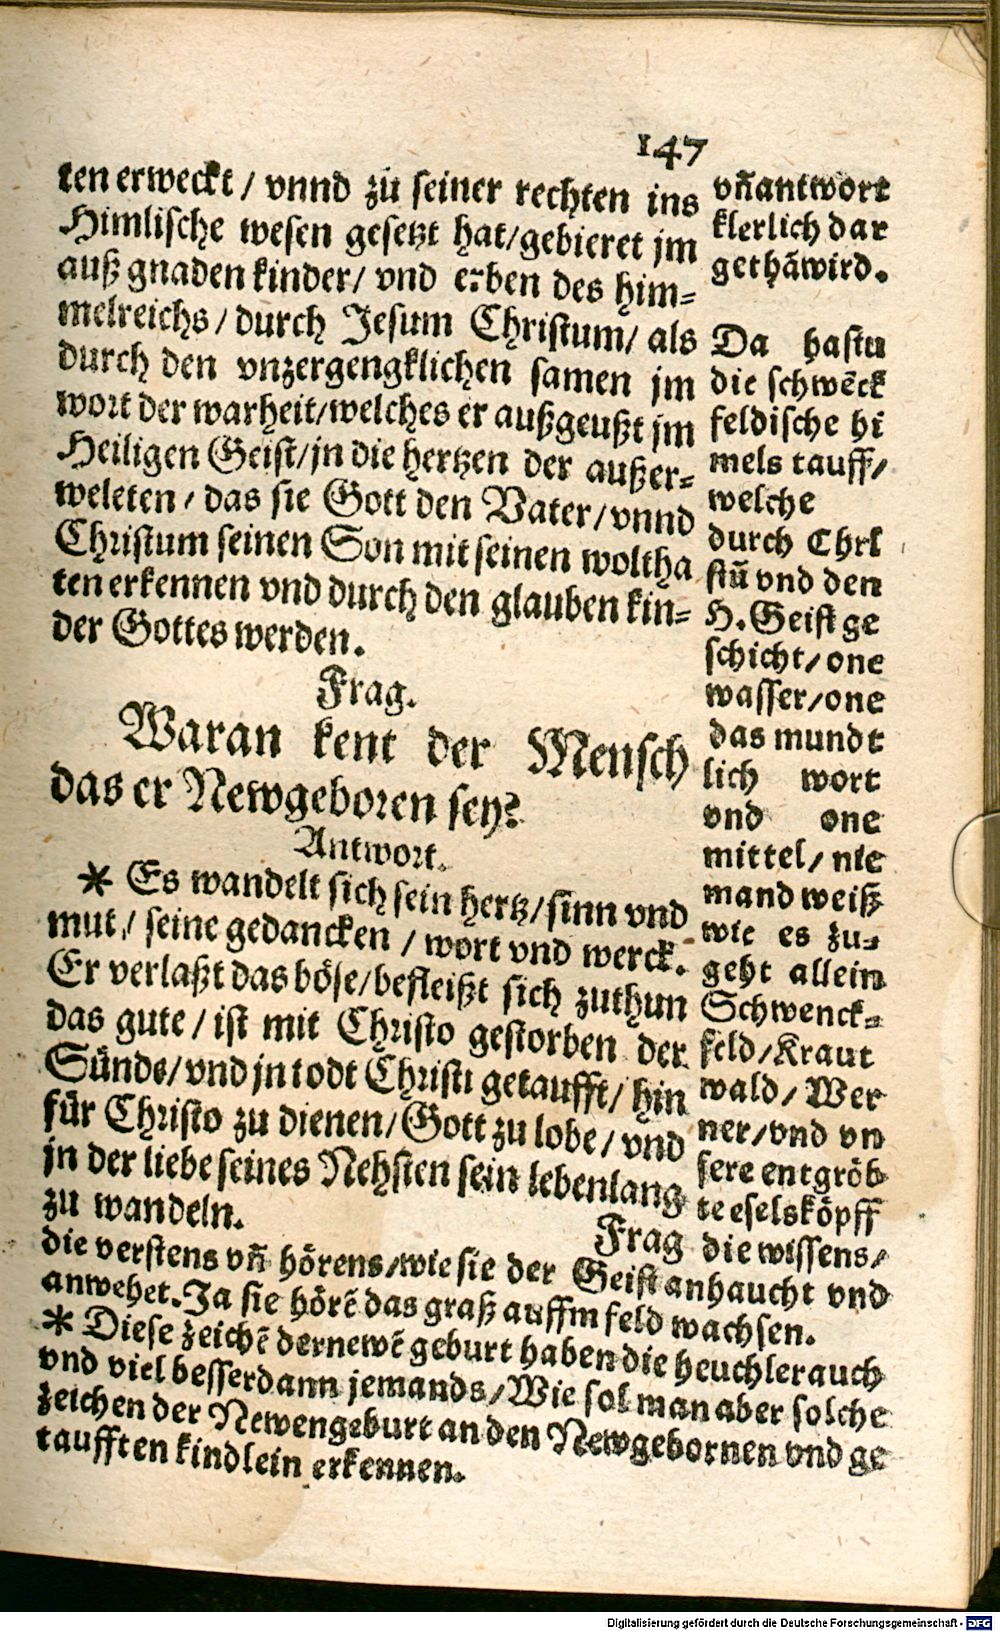 147
ten erweckt / vnnd zu seiner rechten ins
Himlische wesen gesetzt hat/gebieret jm
auß gnaden kinder/ vnd erben des him-
melreichs / durch Jesum Christum/ als
durch den vnzergengklichen samen jm
wort der warheit/welches er außgeußt jm
Heiligen Geist/jn die hertzen der außer-
weleten / das sie Gott den Vater/vnnd
Christum seinen Son mit seinen woltha
ten erkennen vnd durch den glauben kin-
der Gottes werden.
Frag.
Waran kent der Mensch
das er Newgeboren sey?
Antwort.
* Es wandelt sich sein hertz/sinn vnd
mut / seine gedancken / wort vnd werck.
Er verlaßt das böse/befleißt sich zuthun
das gute / ist mit Christo gestorben der
Sünde/vnd jn todt Christi getaufft/ hin
für Christo zu dienen/Gott zu lobe/ vnd
jn der liebe seines Nehsten sein lebenlang
zu wandeln.
Frag
vñ antwort
klerlich dar
gethã wird.
Da hastu
die schwẽck
feldische hi
mels tauff/
welche
durch Chri
stũ vnd den
H. Geist ge
schicht/one
wasser/one
das mundt
lich wort
vnd one
mittel/ nie
mand weiß
wie es zu-
geht allein
Schwenck-
feld/Kraut
wald/ Wer
ner/vnd vn
sere entgröb
te eselsköpff
die wissens/
die verstens vñ hörens/wie sie der Geist anhaucht vnd
anwehet. Ja sie hörẽ das graß auffm feld wachsen.
* Diese zeichẽ der newẽ geburt haben die heuchler auch
vnd viel besser dann jemands/Wie sol man aber solche
zeichen der Newengeburt an den Newgebornen vnd ge
taufften kindlein erkennen.
Digitalisierung gefördert durch die Deutsche Forschungsgemeinschaft - DFG